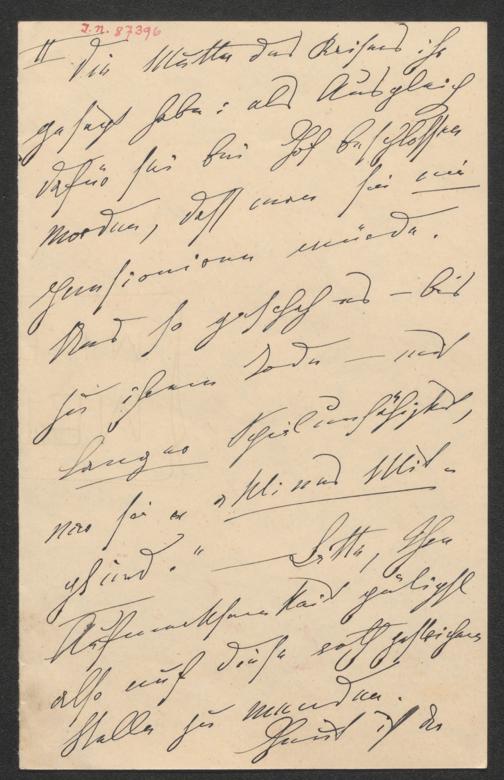 I.N. 87396
II Die Mutter des Kaisers ihr
gesagt habe: als Ausgleich
dafür sei bei Hof beschlossen
worden, daß man sie nie
pensionieren würde.
Und so geschah es – bis
zu ihrem Tode – und
langer Spielunfähigkeit,
war sie „kl Mit-
glied." – Bitte, Ihre
Aufmerksamkeit gütigst
also auf diese roth gestrichene
Stelle zu wenden.
Sonst ist der